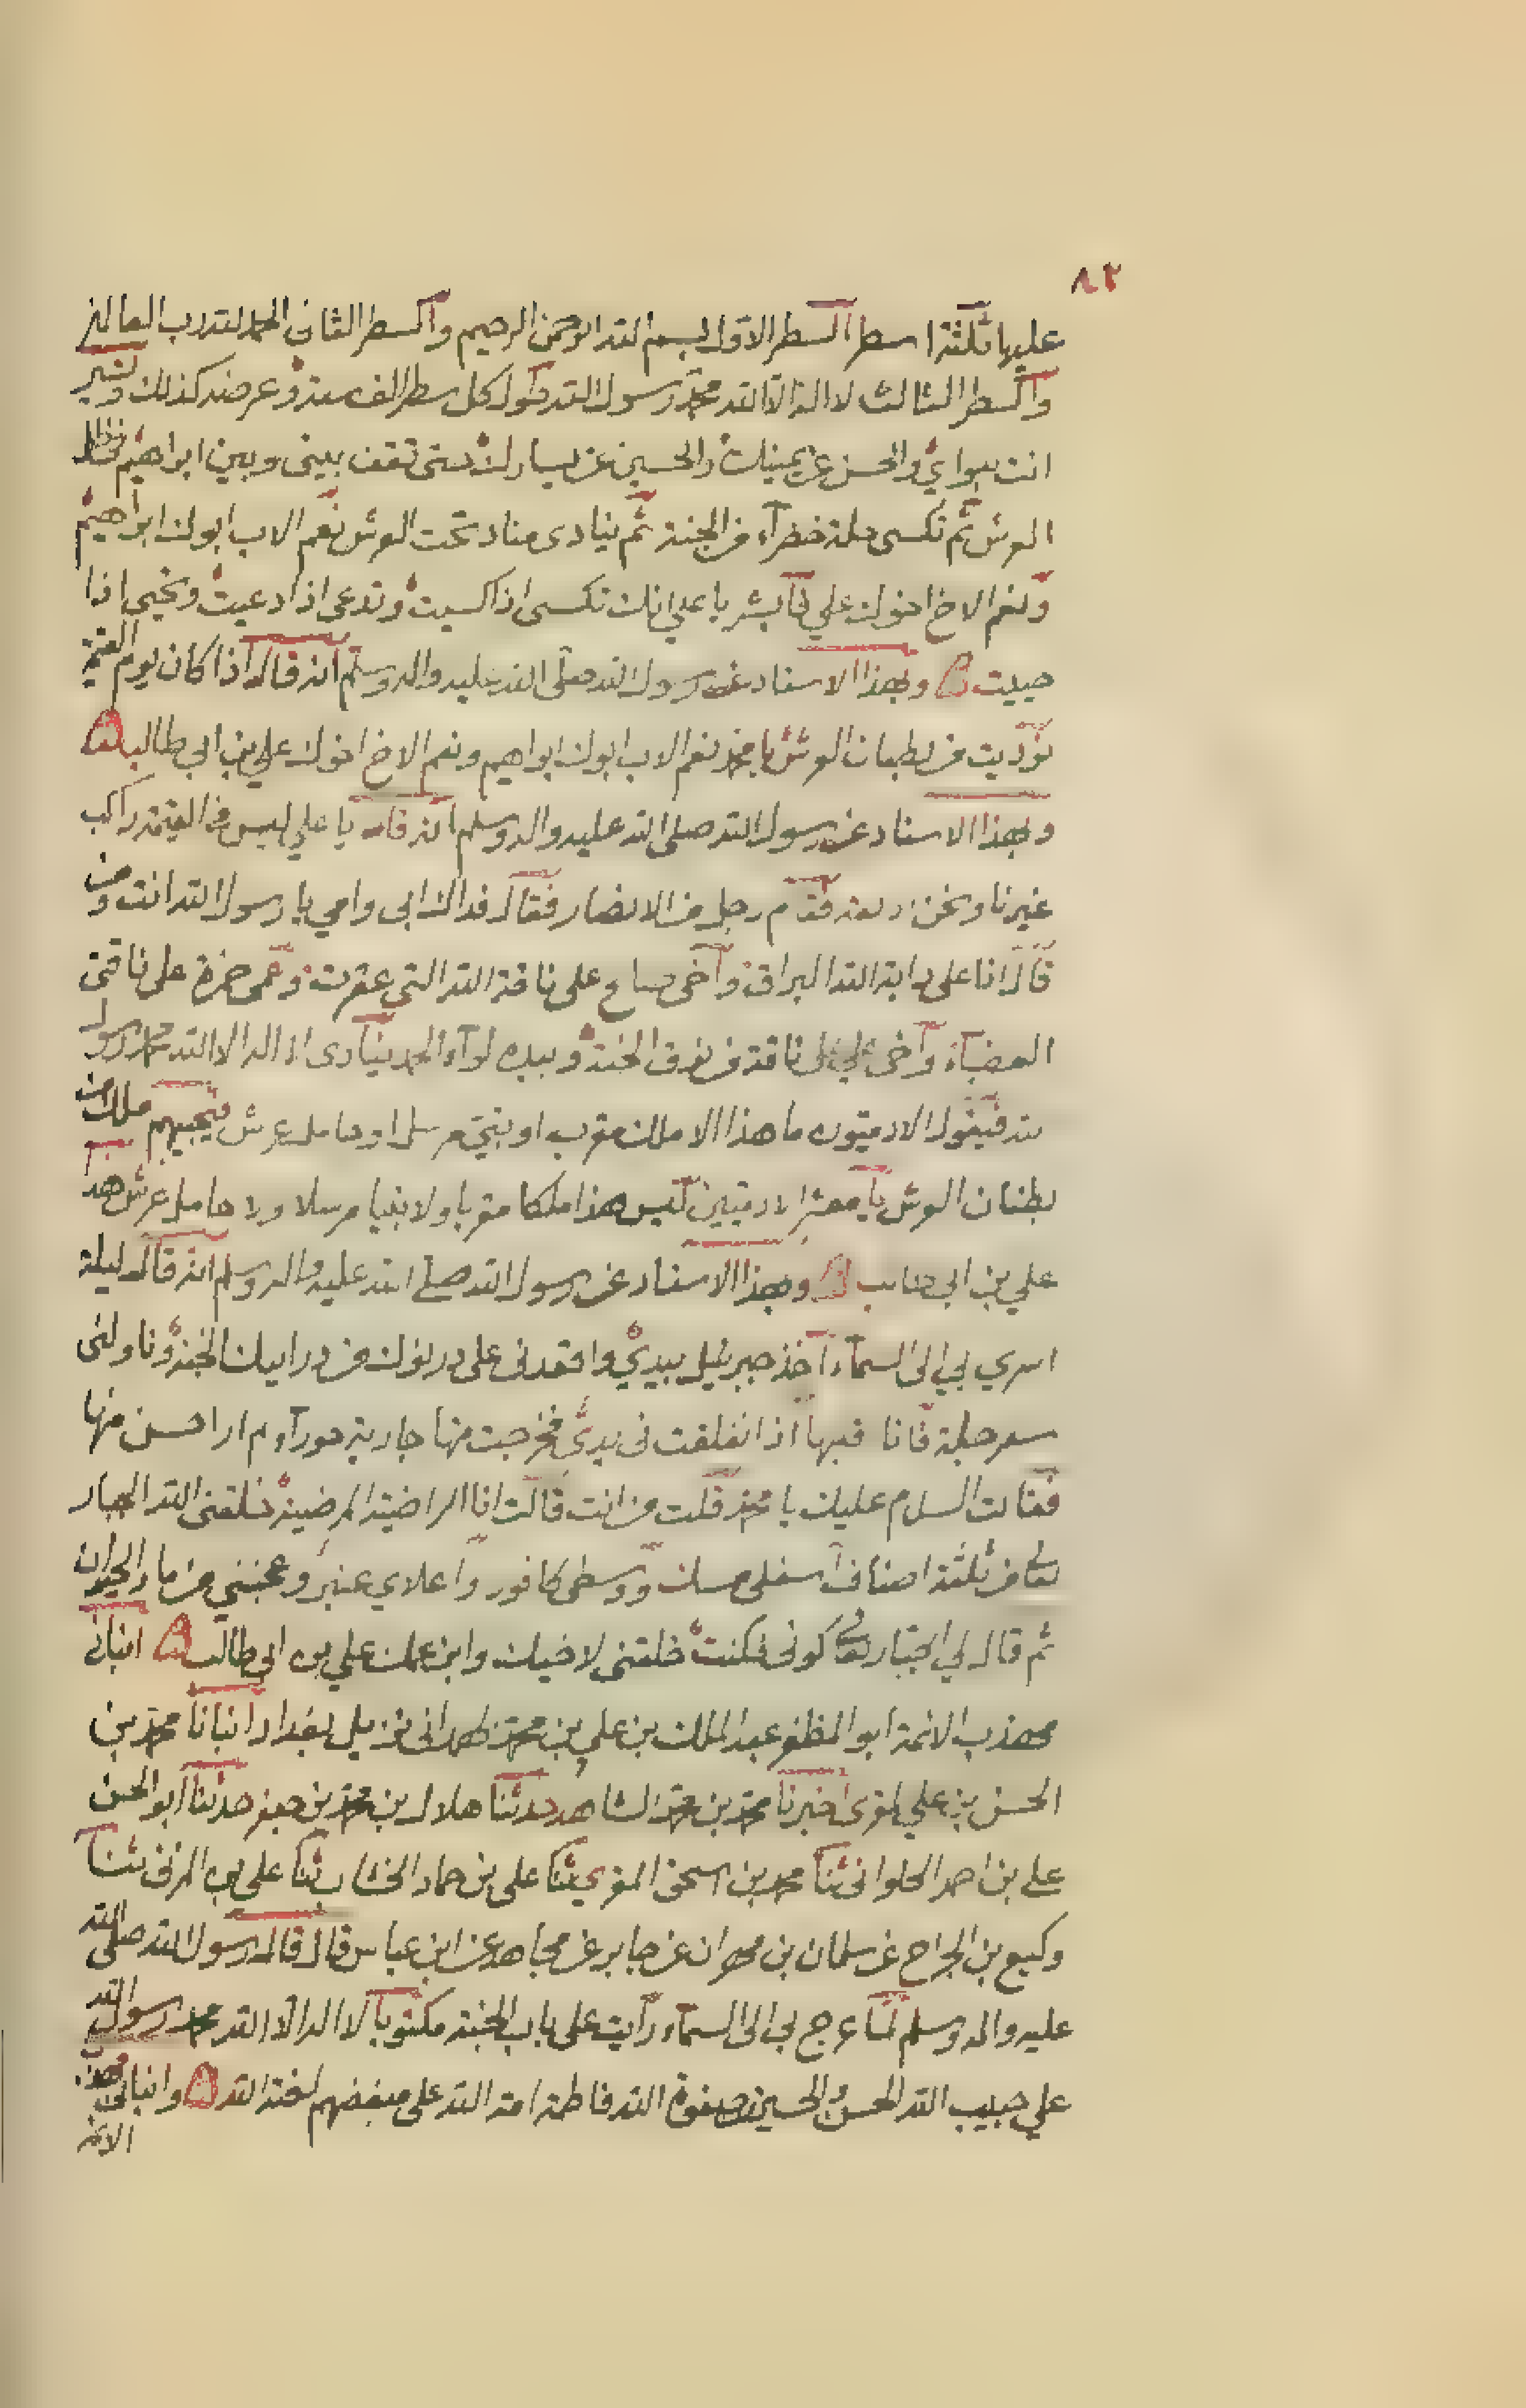 ٨٢
عليها ثلثة اسطر السطر الاول بسم الله الرحمن الرحيم والسطر الثانى الحمد لله رب العالمين
والسطر الثالث لا اله الا الله محمد رسول الله طول كل سطر الف سنة وعرضه كذلك وتسير
انت بلوائي والحسن عن يمينك والحسين عن يسارك حتى تقف بينى وبين ابراهيم فى ظل
العرش ثم تكسى حلة خضرآء من الجنة ثم ينادى مناد تحت العرش نعم الاب ابوك ابراهيم
ونعم الاخ اخوك علي فابشر يا علي انك تكسى اذا كسيت وتدعى اذا دعيت وتحيى اذا
حييت وبهذا الاسناد عن رسول الله صلى الله عليه واله وسلم انه قال اذا كان يوم القيمة
نوديت من بطنان العرش يا محمد نعم الاب ابوك ابراهيم ونعم الاخ اخوك علي بن ابي طالب
وبهذا الاسناد عن رسول الله صلى الله عليه واله وسلم انه قال يا علي ليس فى القيمة راكب
غيرنا ونحن اربعة فقام رجل من الانصار فقال فداك ابى وامي يا رسول الله انت ومن
قال انا على دابة الله البراق واخى صالح على ناقة الله التي عقرت وعمى حمزة على ناقتى
العضبآء واخى علي على ناقة من نوق الجنة وبيده لوآء الحمد ينادى لا اله الا الله محمد رسول
الله فيقول الادميون ما هذا الا ملك مقرب او نبي مرسل او حامل عرش فيجيبهم ملك من
بطنان العرش يا معشر الادميين ليس هذا ملكا مقربا ولا نبيا مرسلا ولا حامل عرش هذا
علي بن ابى طالب وبهذا الاسناد عن رسول الله صلى الله عليه واله وسلم انه قال ليلة
اسري بي الى السمآء اخذ جبرئيل بيدي واقعدنى على درنوك من درانيك الجنة وناولنى
سفرجلة فانا اقلبها اذا انفلقت فى يدي فخرجت منها جارية حورآء لم ار احسن منها
فقالت السلام عليك يا محمد قلت من انت قالت انا الراضية المرضية خلقنى الله الجبار
تعالى من ثلثة اصناف اسفلى مسك ووسطى كافور واعلاي عنبر وعجنني من ماء الحيوان
ثم قال لي الجبار تعالى كونى فكنت خلقنى لاخيك وابن عمك علي بن ابي طالب انبانى
مهذب الائمة ابو المظفر عبد الملك بن علي بن محمد الهمدانى نزيل بغداد انبانا محمد بن
الحسن بن علي المقرى اخبرنا محمد بن محمد الشاهد حدثنا هلال بن محمد بن جعفر حدثنا ابو الحسن
علي بن احمد الحلوانى ثنا محمد بن اسحق المقري ثنا على بن حماد الخشاب ثنا على بن المدينى ثنا
وكيع بن الجراح عن سلمان بن مهران عن جابر عن مجاهد عن ابن عباس قال قال رسول الله صلى الله
عليه واله وسلم لما عرج بي الى السمآء رأيت على باب الجنة مكتوبا لا اله الا الله محمد رسول الله
علي حبيب الله الحسن والحسين صفوة الله فاطمة امة الله على مبغضهم لعنة الله وانبانى مهذب
الائمة